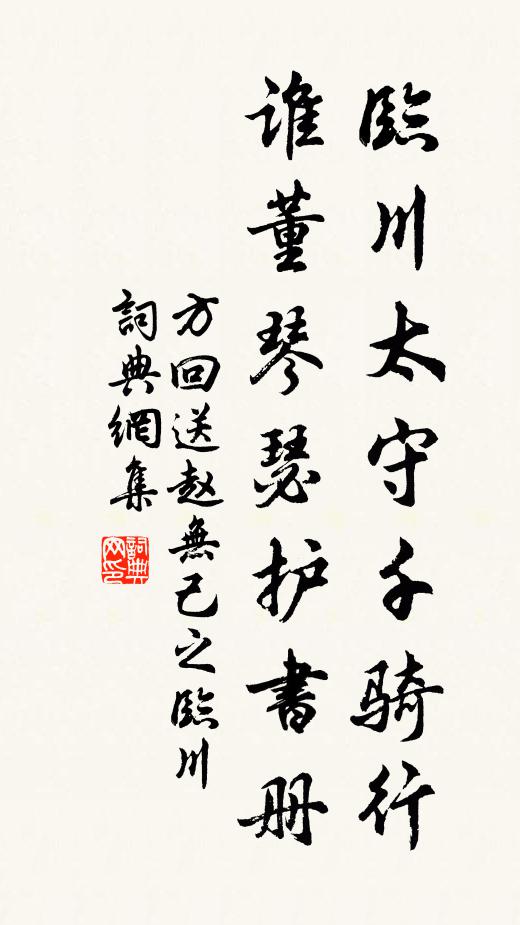 臨川太守千骑行
谁董琴瑟护書册
方回送赵無己之臨川
詞典網集
詞典网印